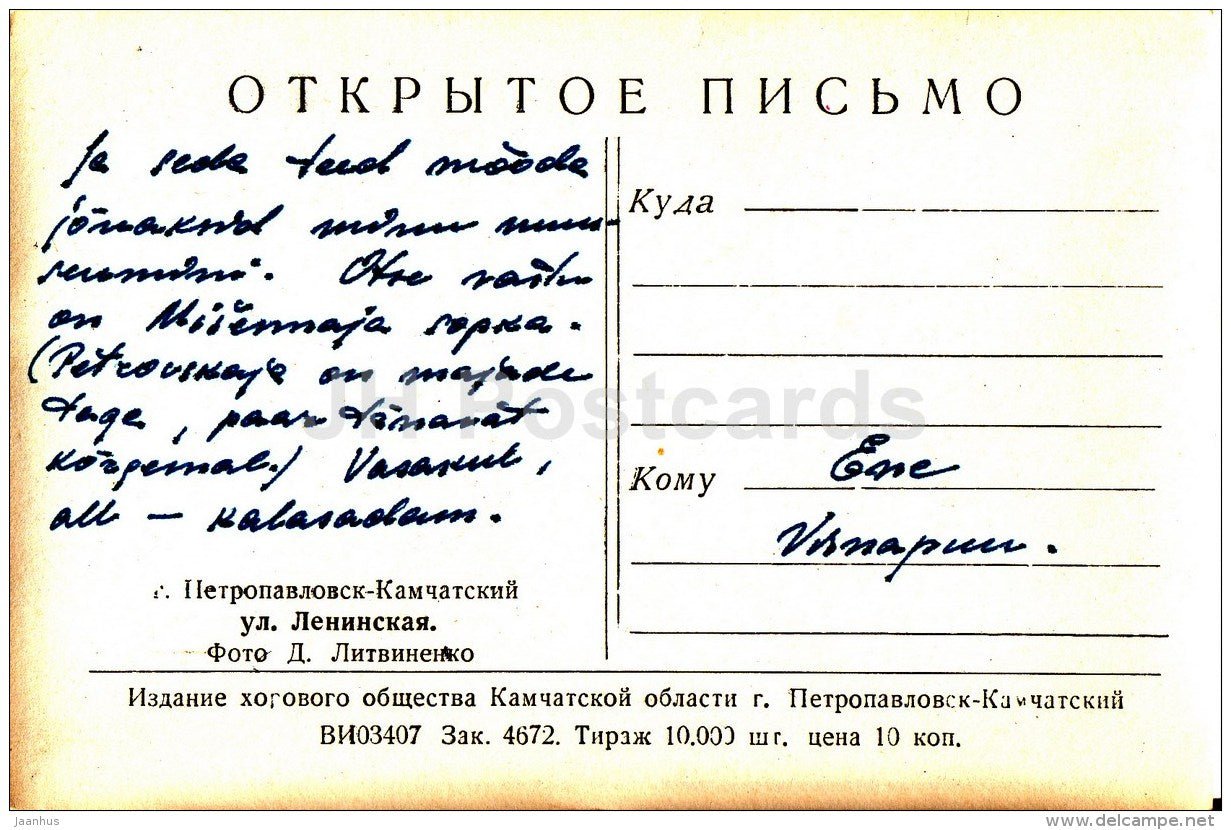 ОТКРЫТОЕ ПИСЬМО
Ja seda teed mööda
jõnaksid minu muu-
seumini. Otse vastu
on Mišennaja sopka.
(Petrovskaja on majade
taga, paar tänavat
kõrgemal.) Vasakul,
all — kalasadam.
Куда
Кому
Ene
Virnapuu.
г. Петропавловск-Камчатский
ул. Ленинская.
Фото Д. Литвиненко
Издание хогового общества Камчатской области г. Петропавловск-Камчатский
ВИ03407 Зак. 4672. Тираж 10.000 шг. цена 10 коп.
JH Postcards
Jaanhus
www.delcampe.net